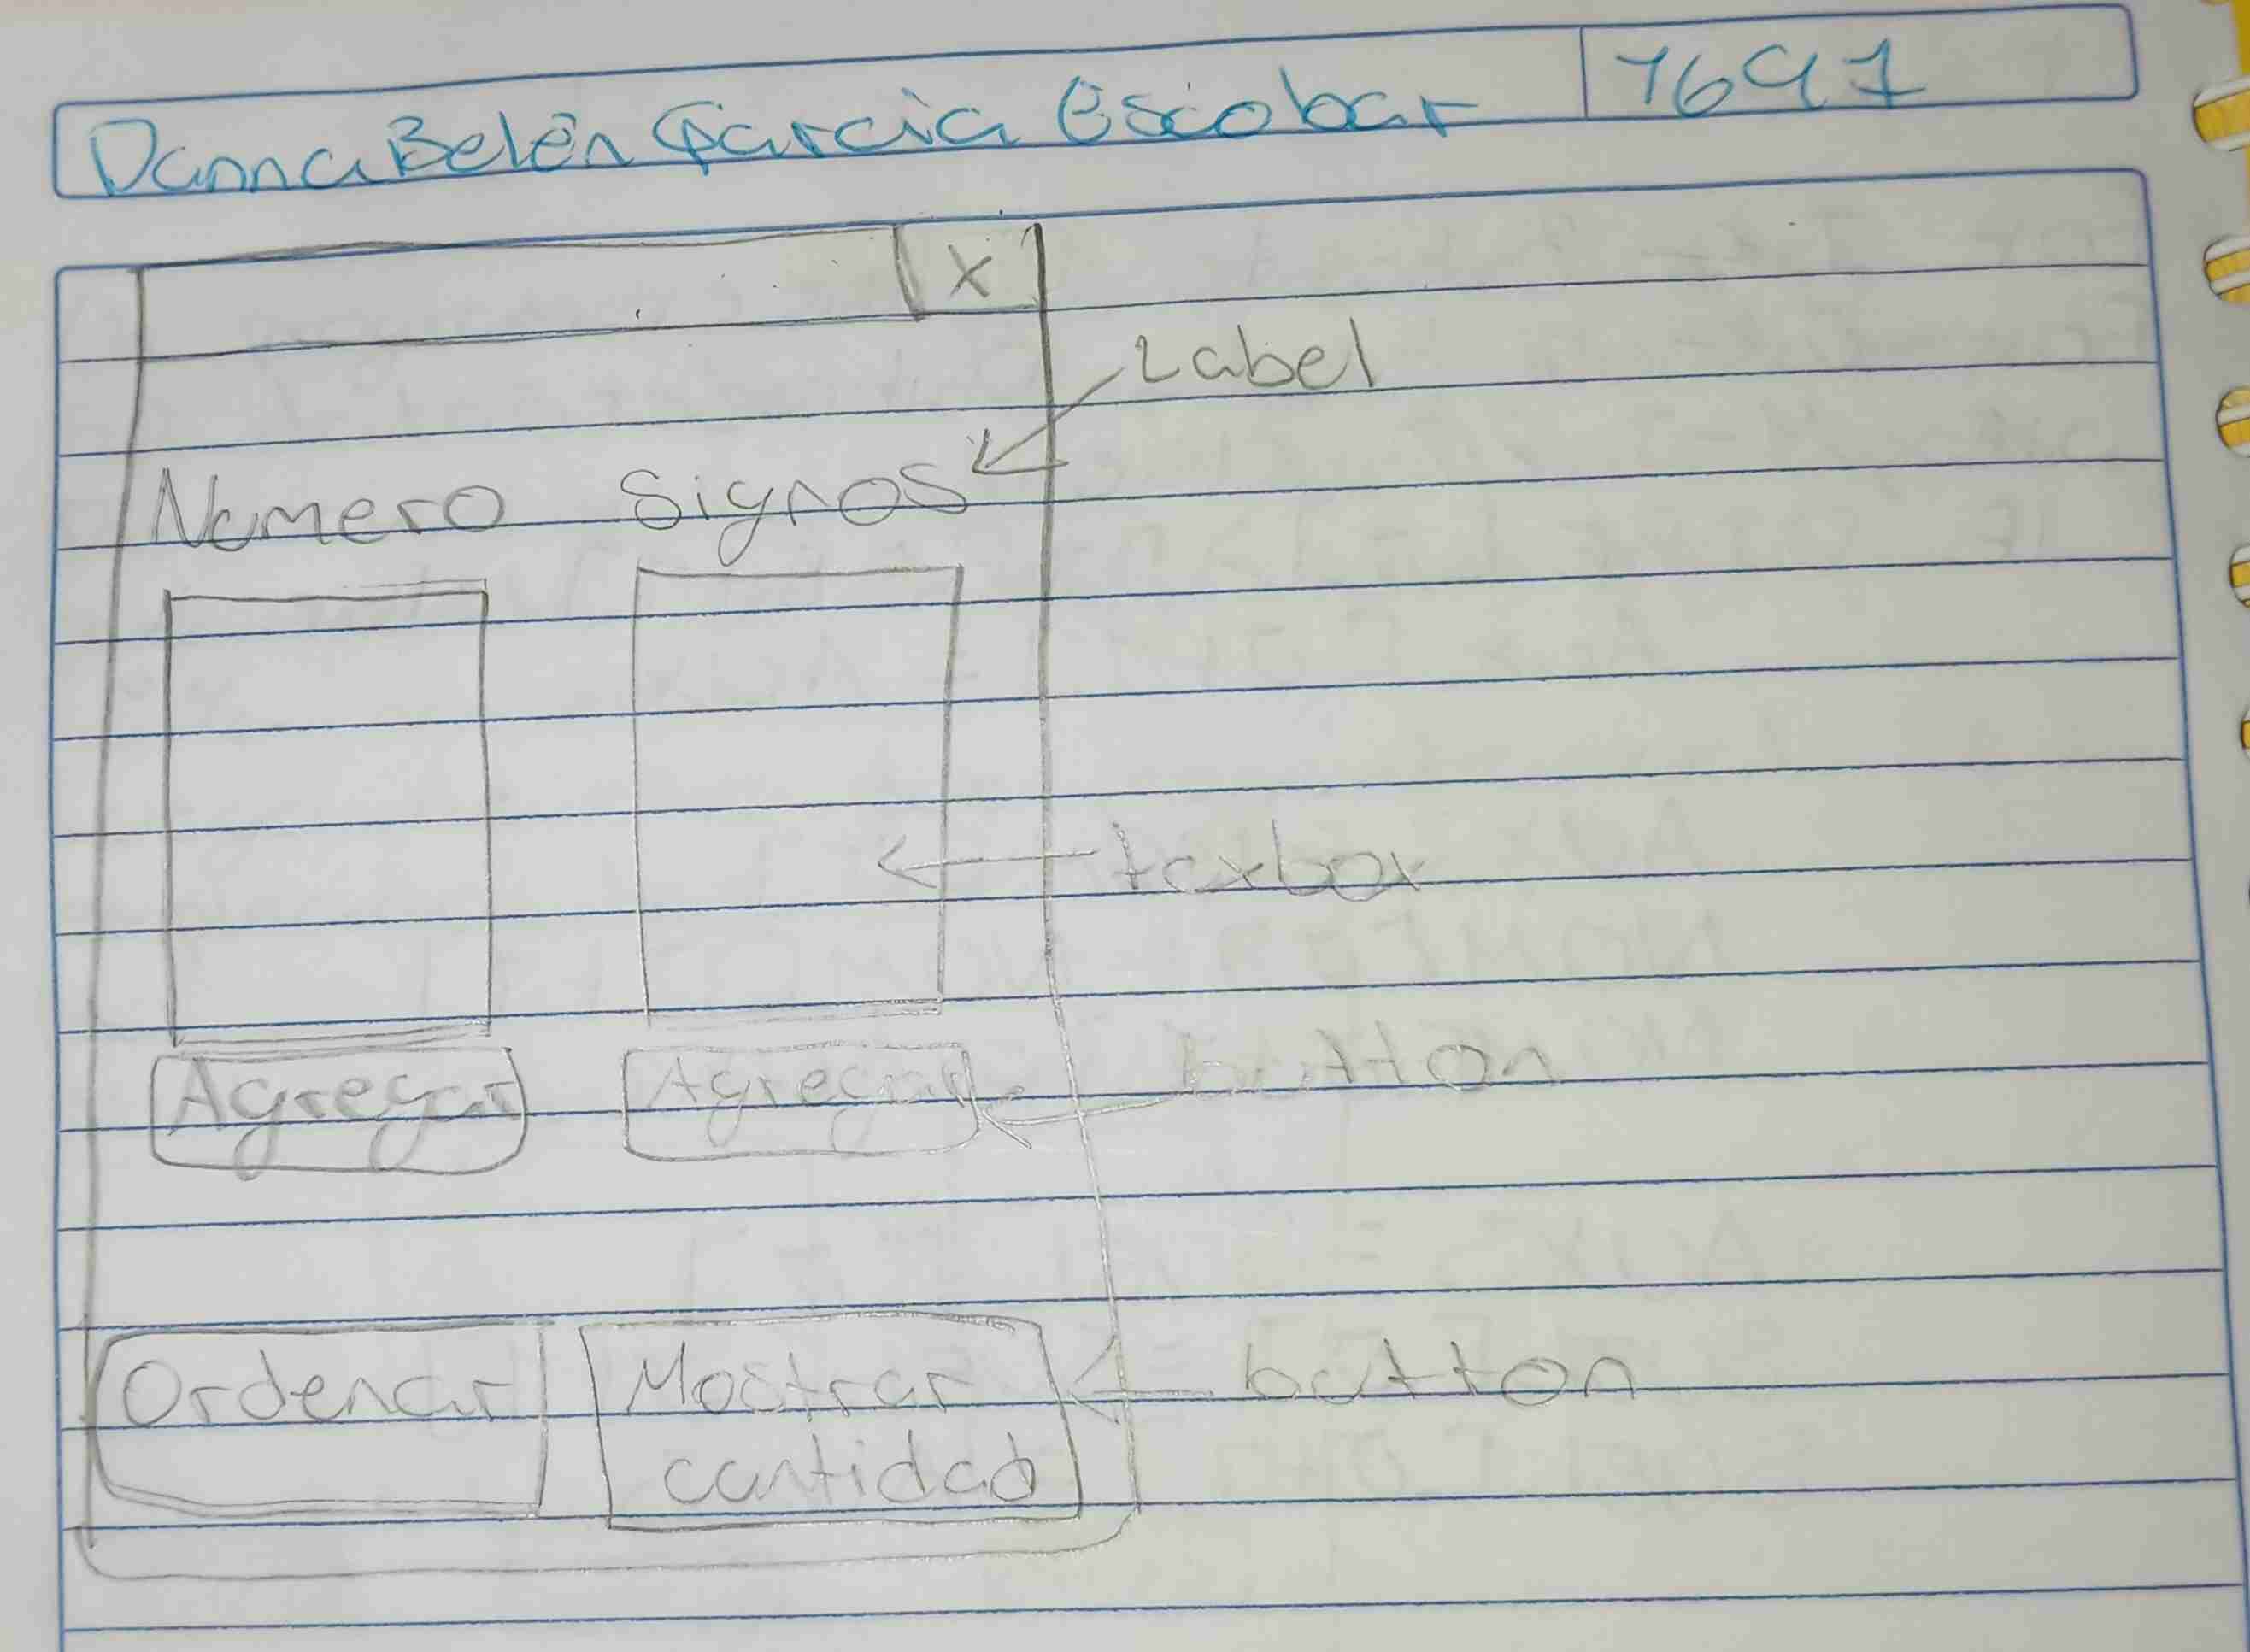 Danna Belén García Escobar 7697
X
Label
Numero Signos
texbox
Agregar Agregar button
Ordenar Mostrar cantidad button